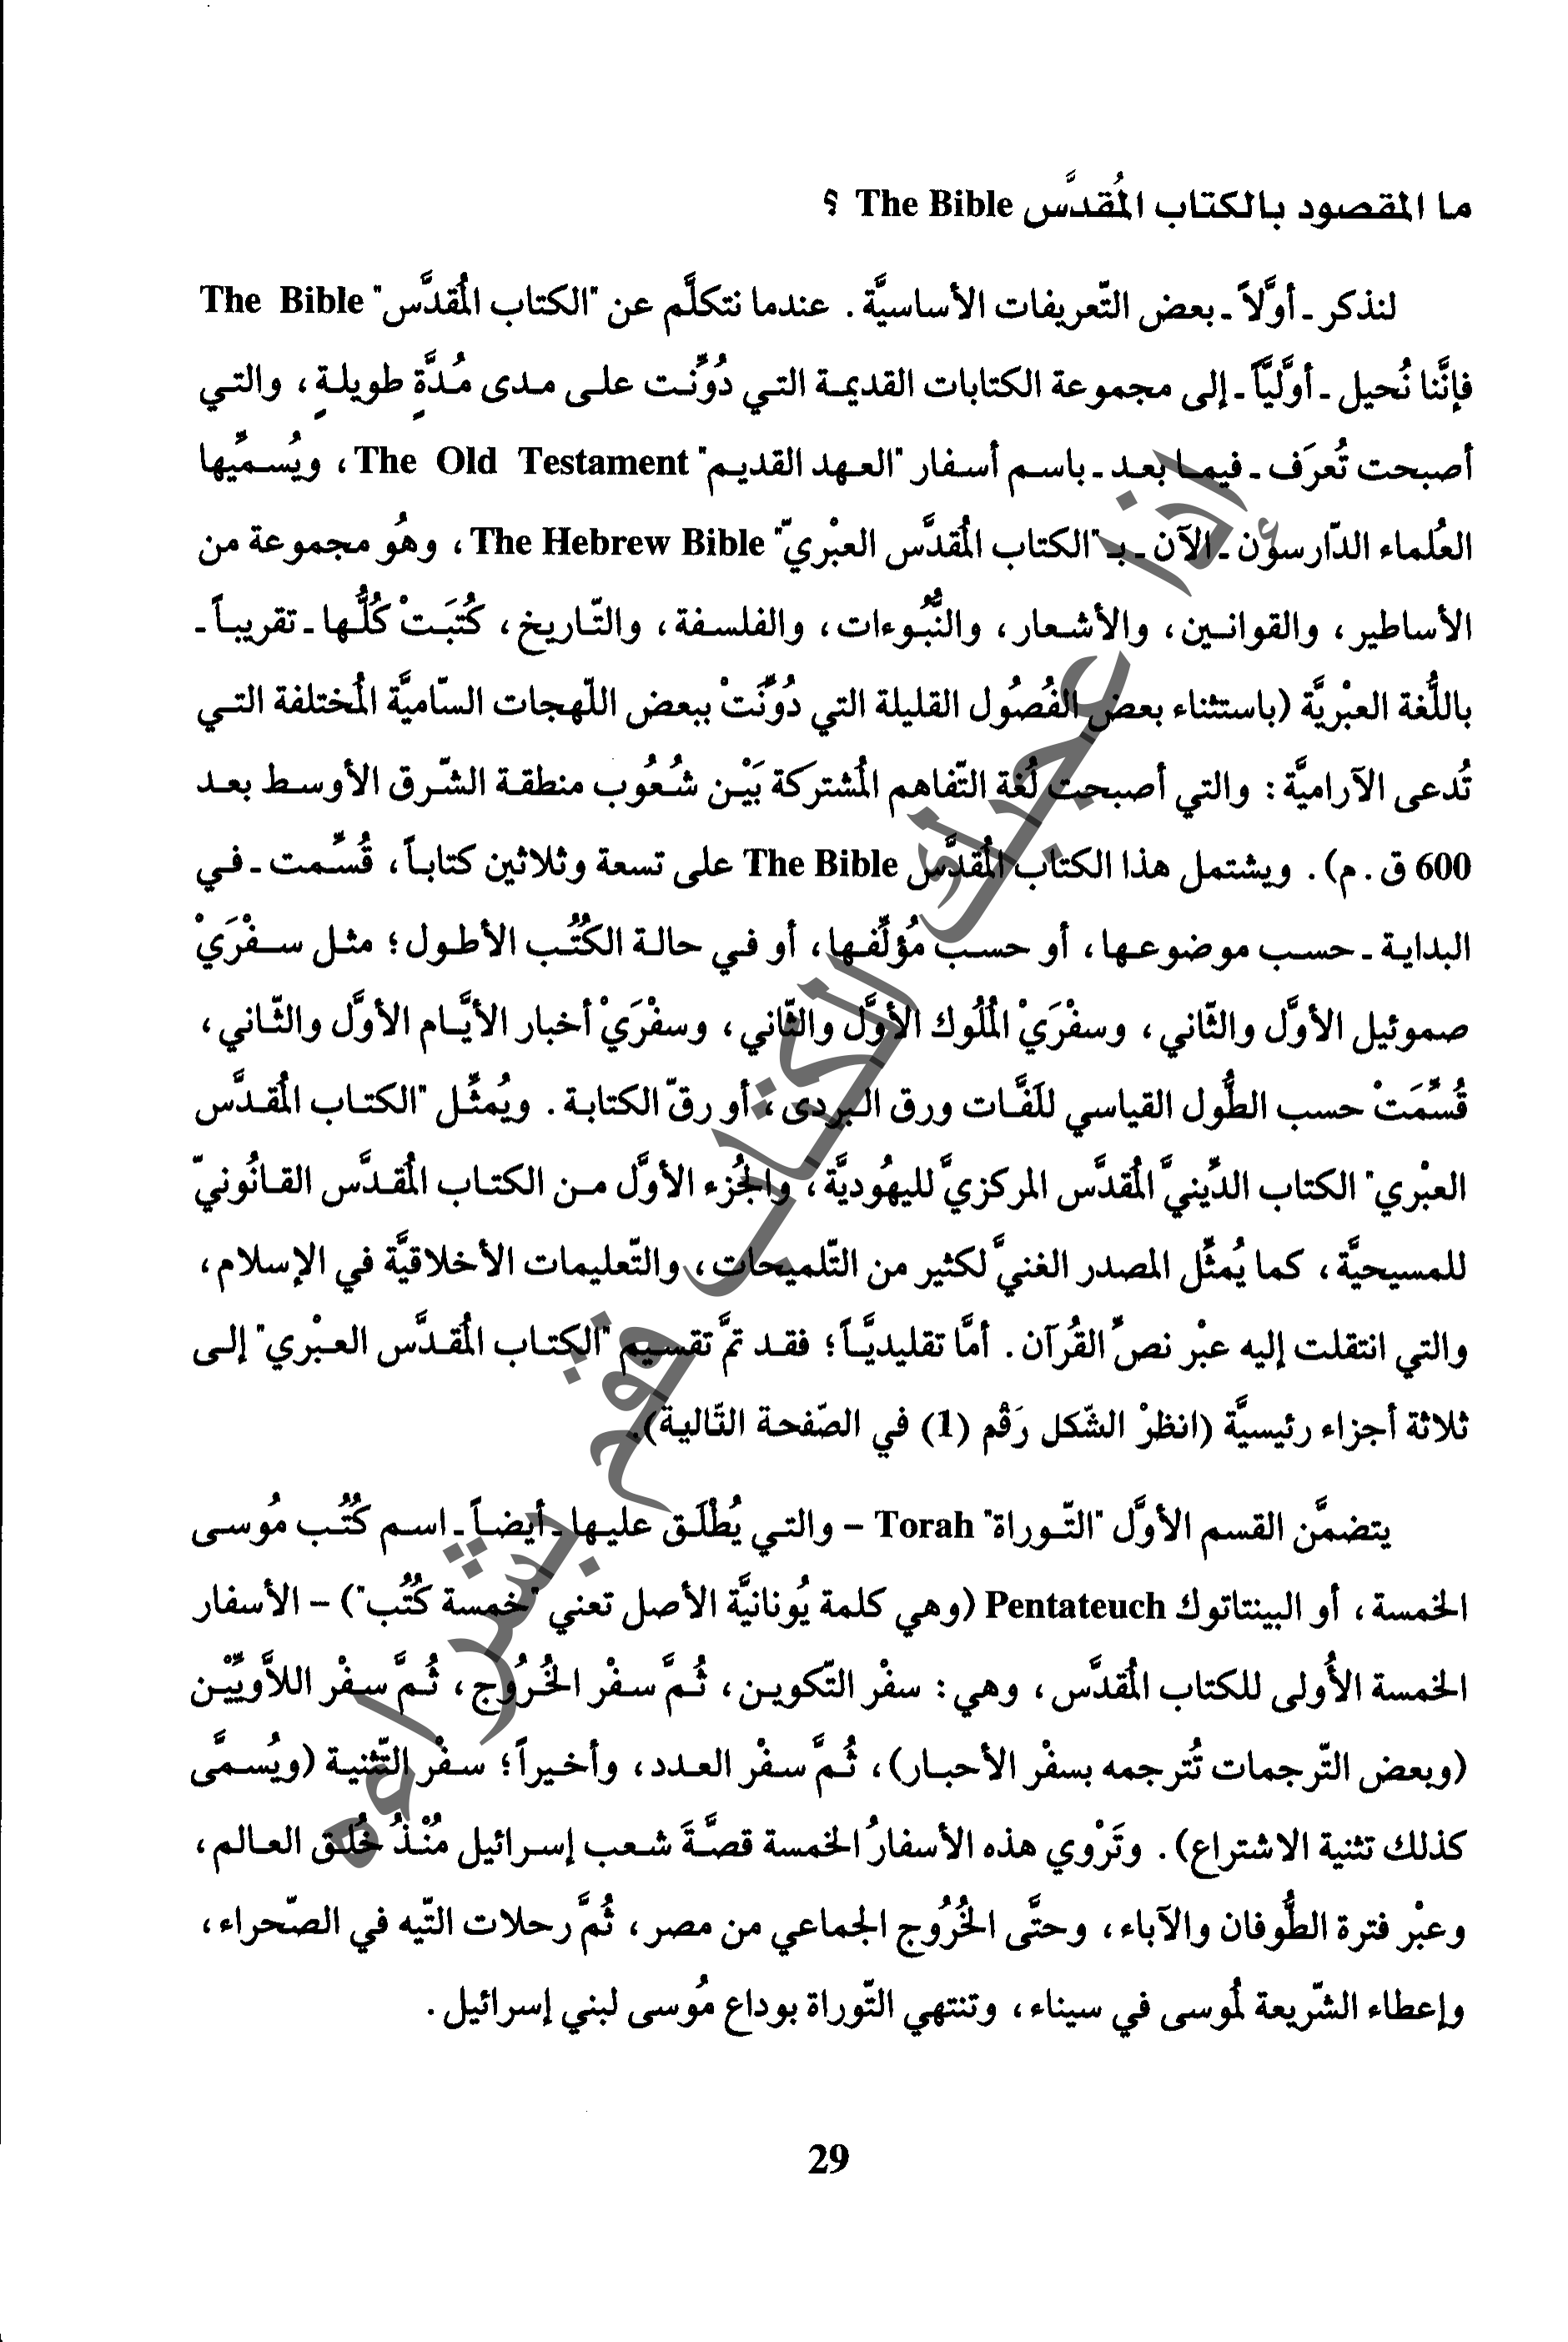 ما المقصود بالكتاب المُقدَّس The Bible ؟
لنذكر ـ أوَّلاً ـ بعض التّعريفات الأساسيَّة . عندما نتكلَّم عن "الكتاب المُقدَّس" The Bible
فإنَّنا نُحيل ـ أوَّليَّاً ـ إلى مجموعة الكتابات القديمة التي دُوِّنت على مدى مُدَّةٍ طويلةٍ ، والتي
أصبحت تُعرَف ـ فيما بعد ـ باسم أسفار "العهد القديم" The Old Testament ، ويُسمِّيها
العُلماء الدّارسون ـ الآن ـ بـ"الكتاب المُقدَّس العبْريّ" The Hebrew Bible ، وهُو مجموعة من
الأساطير ، والقوانين ، والأشعار ، والنُّبُوءات ، والفلسفة ، والتّاريخ ، كُتبَتْ كُلُّها ـ تقريباً ـ
باللُّغة العبْريَّة (باستثناء بعض الفُصُول القليلة التي دُوِّنَتْ ببعض اللّهجات السّاميَّة المُختلفة التي
تُدعى الآراميَّة : والتي أصبحت لُغة التّفاهم المُشتركة بَيْن شُعُوب منطقة الشّرق الأوسط بعد
600 ق . م) . ويشتمل هذا الكتاب المُقدَّس The Bible على تسعة وثلاثين كتاباً ، قُسِّمت ـ في
البداية ـ حسب موضوعها ، أو حسب مُؤلِّفها ، أو في حالة الكُتُب الأطول ؛ مثل سفْرَيْ
صموئيل الأوَّل والثّاني ، وسفْرَيْ المُلُوك الأوَّل والثّاني ، وسفْرَيْ أخبار الأيَّام الأوَّل والثّاني ،
قُسِّمَتْ حسب الطُّول القياسي للَفَّات ورق البردى ، أو رقّ الكتابة . ويُمثِّل "الكتاب المُقدَّس
العبْري" الكتاب الدِّينيَّ المُقدَّس المركزيَّ لليهُوديَّة ، والجُزء الأوَّل من الكتاب المُقدَّس القانُونيّ
للمسيحيَّة ، كما يُمثِّل المصدر الغنيَّ لكثير من التّلميحات ، والتّعليمات الأخلاقيَّة في الإسلام ،
والتي انتقلت إليه عبْر نصِّ القُرآن . أمَّا تقليديَّاً ؛ فقد تمَّ تقسيم "الكتاب المُقدَّس العبْري" إلى
ثلاثة أجزاء رئيسيَّة (انظرْ الشّكل رَقْم (1) في الصّفحة التّالية).
يتضمَّن القسم الأوَّل "التّوراة" Torah – والتي يُطْلَق عليها ـ أيضاً ـ اسم كُتُب مُوسى
الخمسة ، أو البينتاتوك Pentateuch (وهي كلمة يُونانيَّة الأصل تعني "خمسة كُتُب") – الأسفار
الخمسة الأُولى للكتاب المُقدَّس ، وهي : سفْر التّكوين ، ثُمَّ سفْر الخُرُوج ، ثُمَّ سفْر اللاَّويِّيْن
(وبعض التّرجمات تُترجمه بسفْر الأحبار) ، ثُمَّ سفْر العدد ، وأخيراً ؛ سفْر التّثنية (ويُسمَّى
كذلك تثنية الاشتراع) . وتَرْوي هذه الأسفارُ الخمسة قصَّةَ شعب إسرائيل مُنْذُ خُلق العالم ،
وعبْر فترة الطُّوفان والآباء ، وحتَّى الخُرُوج الجماعي من مصر ، ثُمَّ رحلات التّيه في الصّحراء ،
وإعطاء الشّريعة لمُوسى في سيناء ، وتنتهي التّوراة بوداع مُوسى لبني إسرائيل .
إذا أعجبك الكتاب فقم بشراءه
29